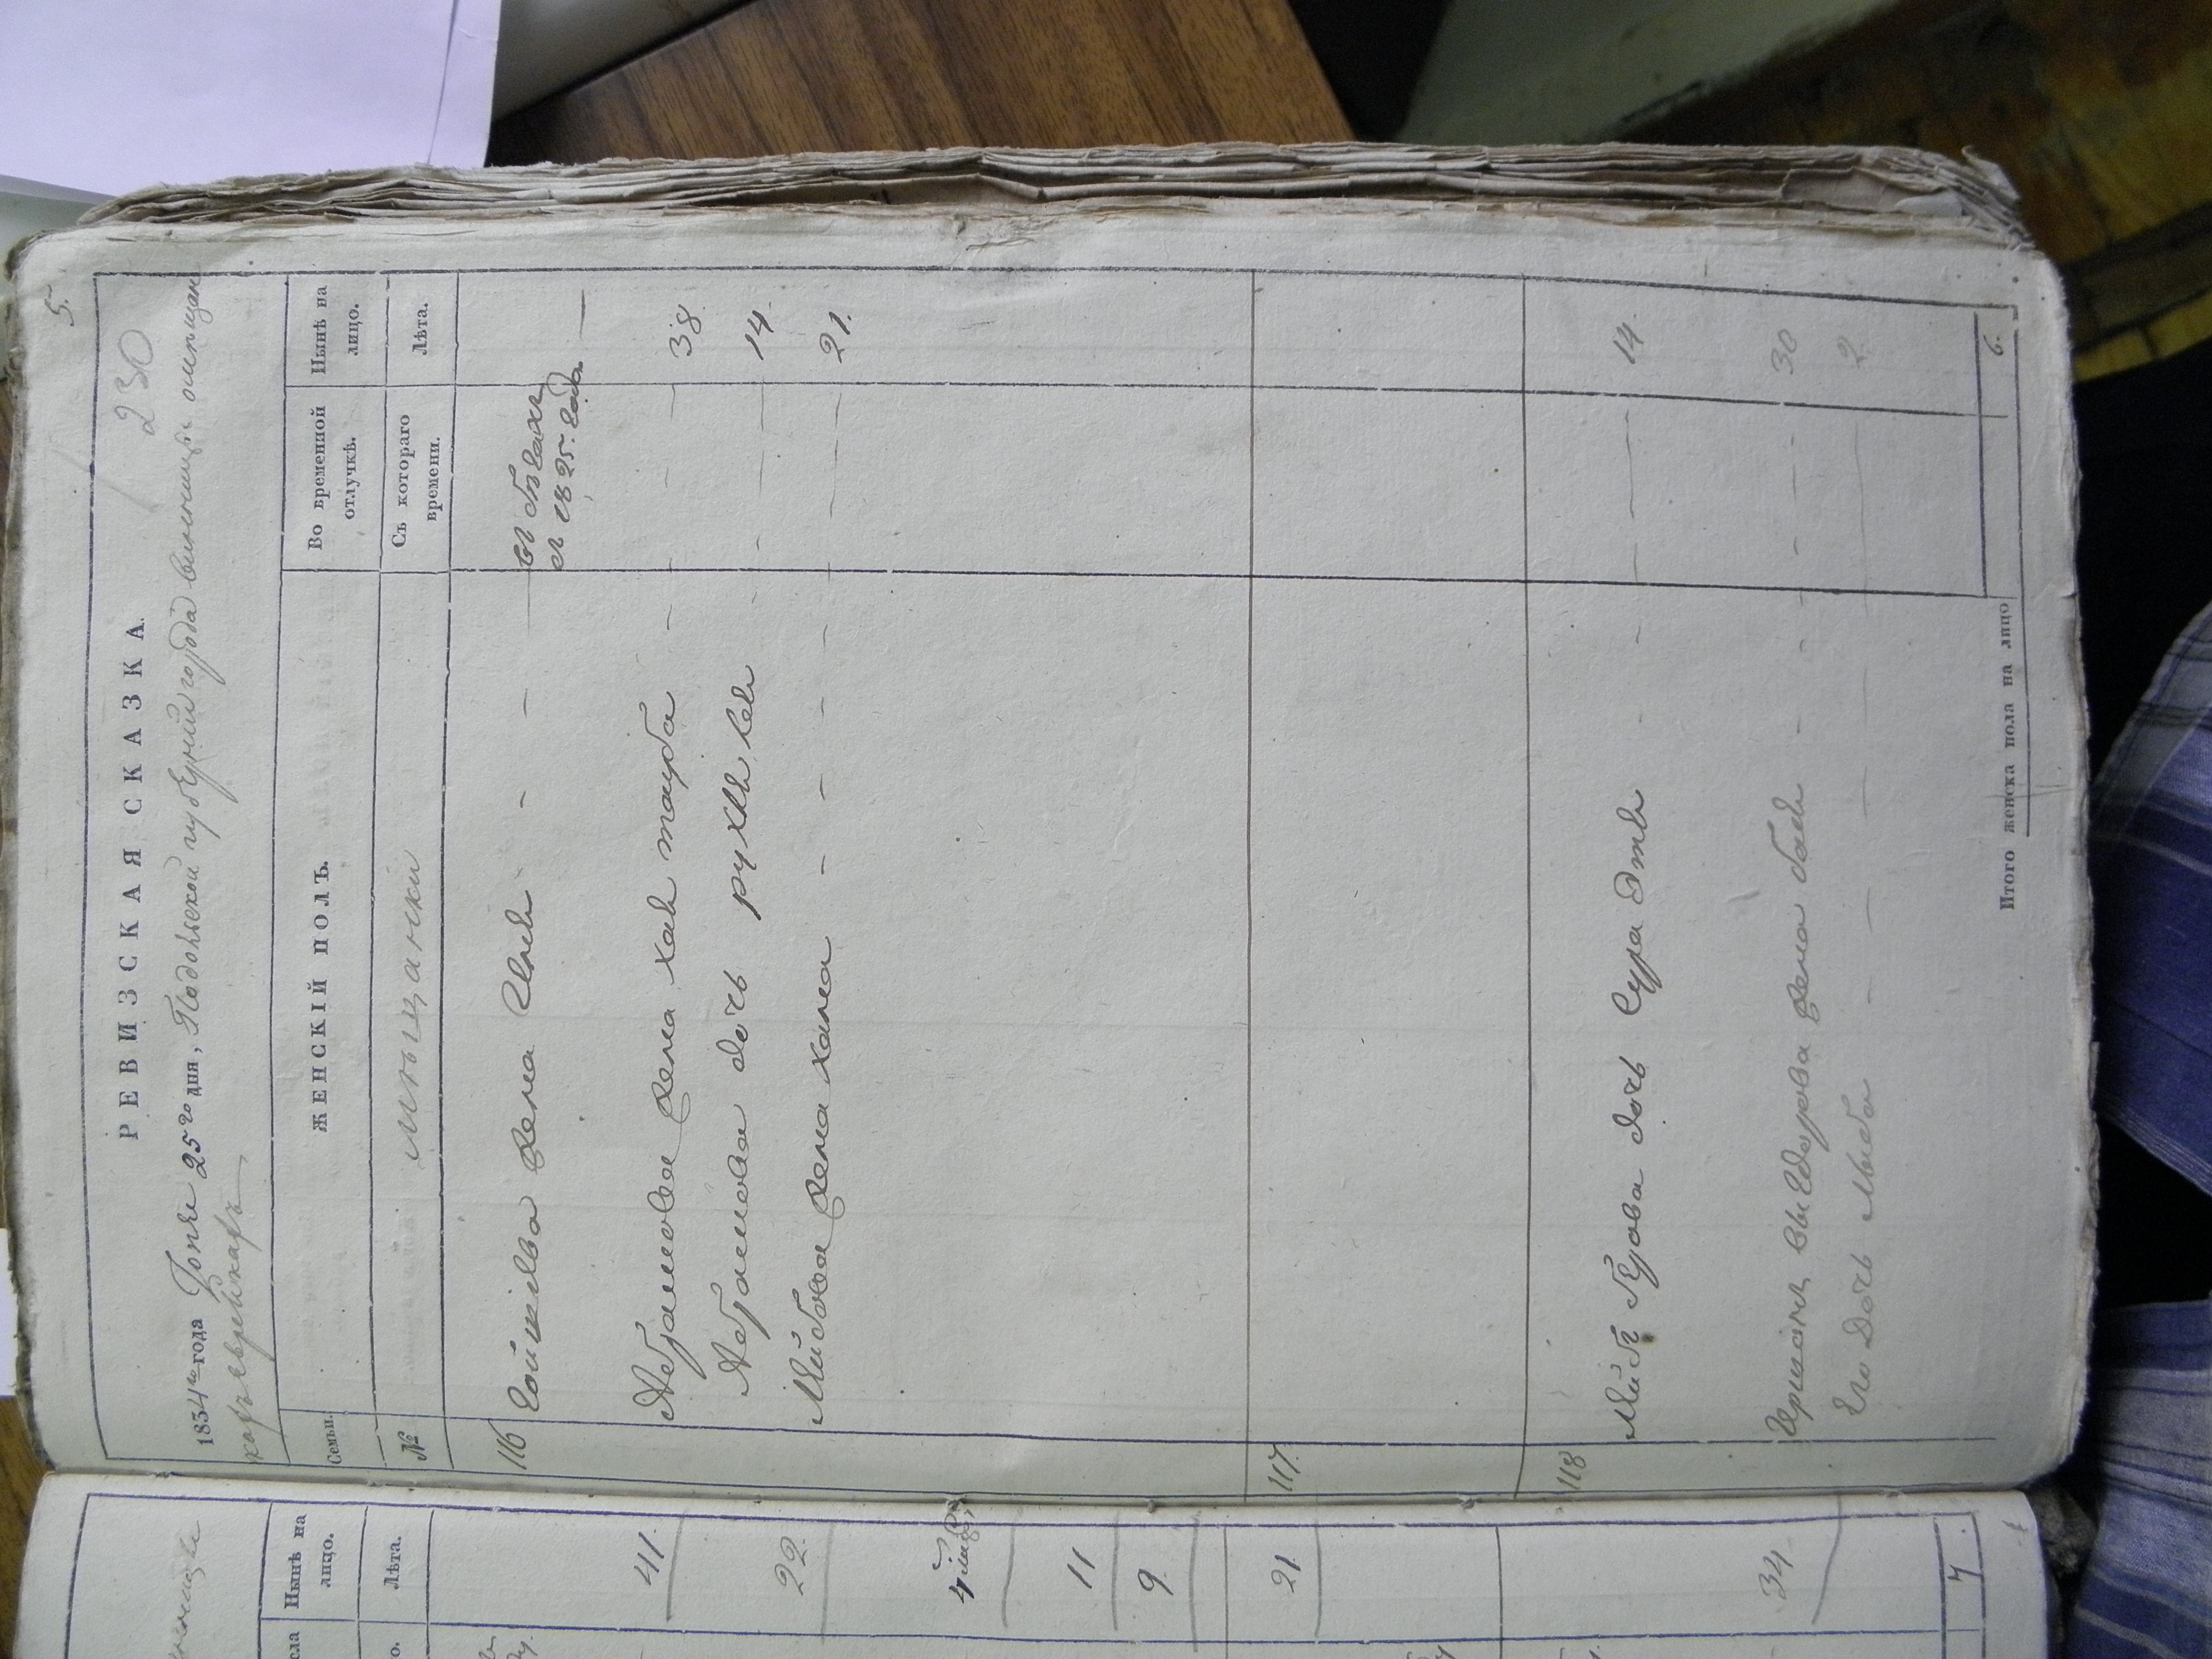 5.
230
РЕВИЗСКАЯ СКАЗКА.
1834го года Іюня 25го дня, Подольской губерніи города
евреинахъ
Семьи. ЖЕНСКІЙ ПОЛЪ. Во временной отлучкѣ. Нынѣ на лицо.
№ мѣщанки Съ котораго времени. Лѣта.
116 жена въ бѣгахъ
съ 1825. года —
Абрамова жена хая тауба - - - 38.
Абрамова дочь рухля лея - - 14.
Лейбова жена хана - - - - 21.
117.
118 Лейбы дочь Сура Этля - - 14.
жена бейля - - - 30
Его Дочь - - - 2.
Итого женска пола на лицо 6.
Нынѣ на лицо.
Лѣта.
41.
22.
4
11
9.
21.
34.
7.